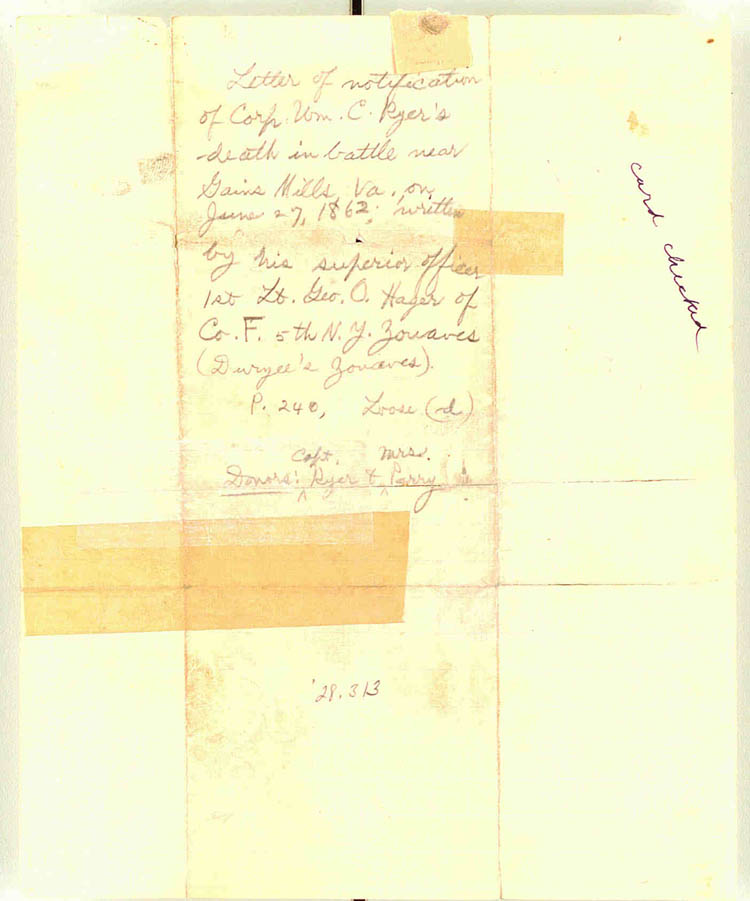 Letter of notification
of Corp. Wm. C. Ryer's
death in battle near
Gains Mills, Va., on
June 27, 1862; written
by his superior officer
1st Lt. Geo. O. Hager of
Co. F. 5th N.Y. Zouaves
(Duryee's Zouaves).
P. 240, Loose (d)
Capt. Mrs.
Donors: Ryer & Perry
'28.313
card checked